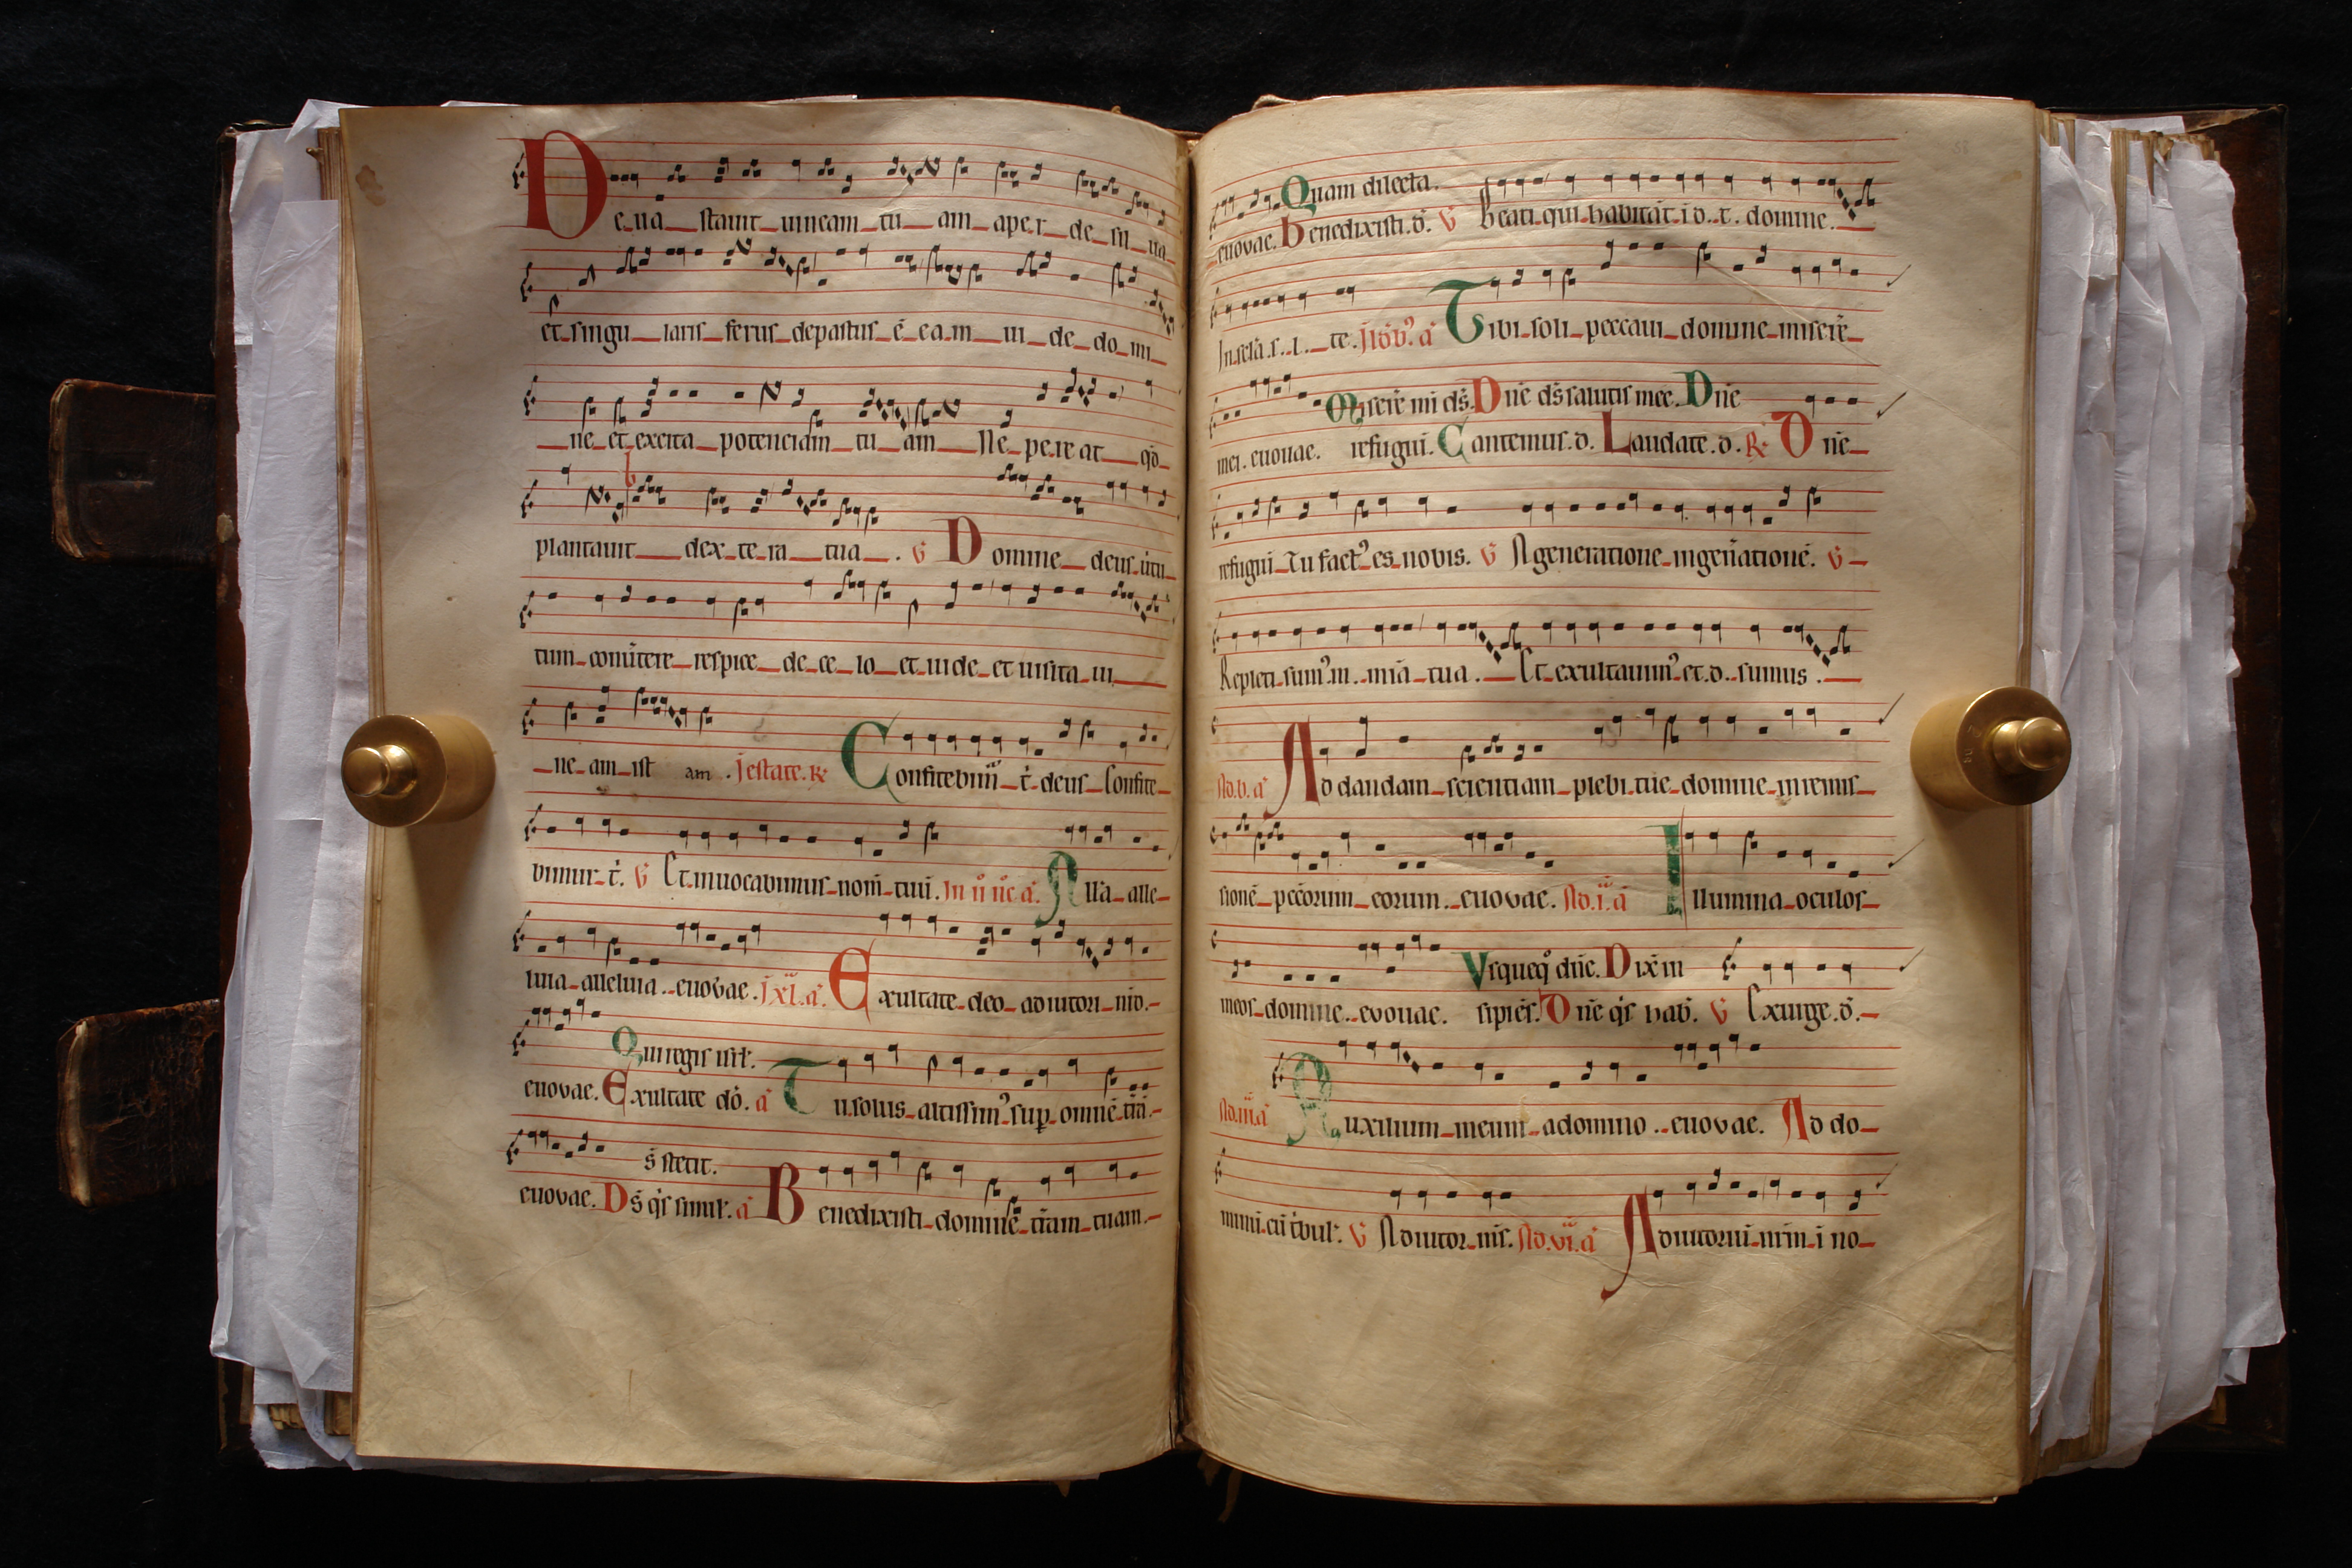 De_ua_stauit_uineam_tu_am_aper_de_sil_ua_
et_singu_laris_ferus_depastus_ē_ea.m_ui_de_do_mi_
_ne_et_excita_potenciam_tu_am_Ne_pe.re at_qd̄_
plantauit_dex_te_ra_tua_. V Domine_deus_uirtu_
tum_conuertere_respice_de_ce_lo_et_uide_et uisita_ui_
_ne_am_ist am . J estate. R Confitebim̄_t̄_deus_Confite_
bimur_t̄. V Et_inuocabimus_nom̄_tuū. Alla_alle_
luia_alleluia._euovae. Exultate_deo_adiutori_nr̄o._
Qui regis isrl̄.
euovae. Exultate dō. a Tu.solus_altissim9_sup_omnē_tr̄ā._
s̄ stetit.
euovae. Ds̄ q̄s simil̄. a Benedixisti_domine_tr̄am_tuam._
58
Quam dilecta.
euovae. Benedixisti.d̄. V Beati_qui_habitāt_i d._t. domine._
In.sclā.s._l._te. Tibi_soli_peccaui_domine_misere_
Miserē mī ds̄. Dn̄e ds̄ salutis mee. Dn̄e
mei. euouae. refugiū. Cantemus.d. Laudate.d. R Dn̄e_
refugiū_Tu fact9_es_nobis. V A generatione_in gen̄ationē. V _
Repleti_sum9.m._mīa_tua._Et_exultauim9_et.d._sumus._
Ad.b.a Ad dandam_scientiam_plebi.tue_domine_in remis_
sionē_pec̄corum_eorum._euovae. Ad.i.a Illumina_oculos_
Vsqueq° dn̄e. Dix̄ in
meos_domine._evouae. sipiēs. Dn̄e q̄s hab̄. V Exurge.d̄._
Ad.iii.a Auxilium_meum_a domino._euovae. Ad do_
minū.cū t̄bul̄. V Adiutor_m̄s. Ad.vi.a Adiutoriū_nr̄m_i no_